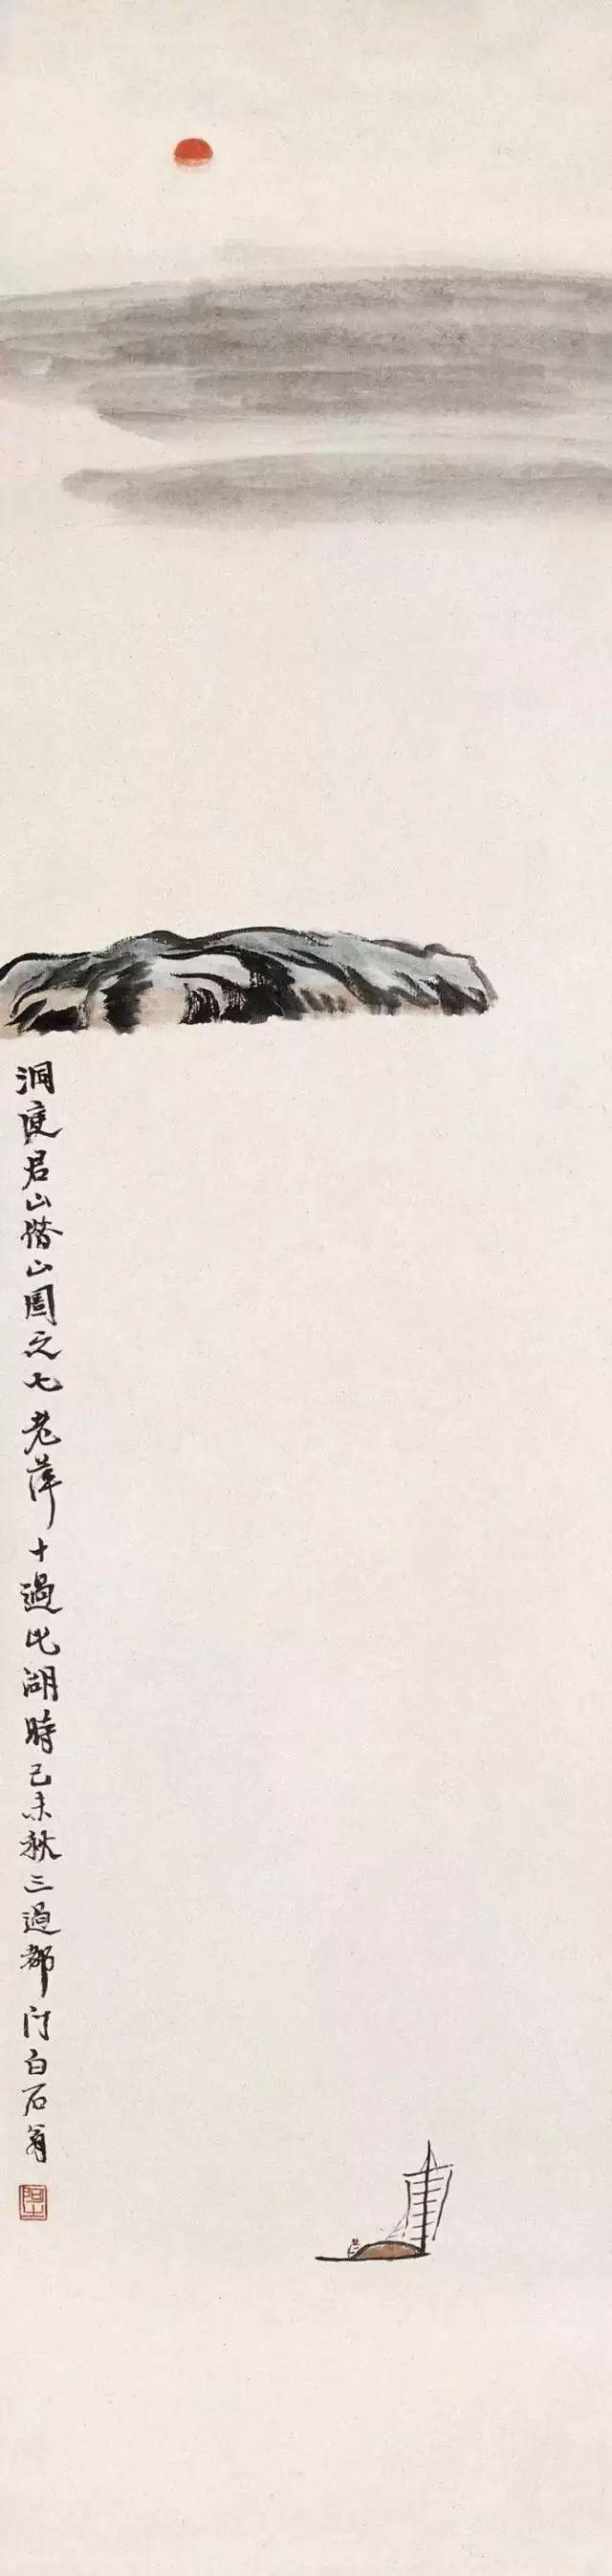 洞庭君山借山圖之七老萍十過此湖時己未秋三過都門白石翁
阿芝